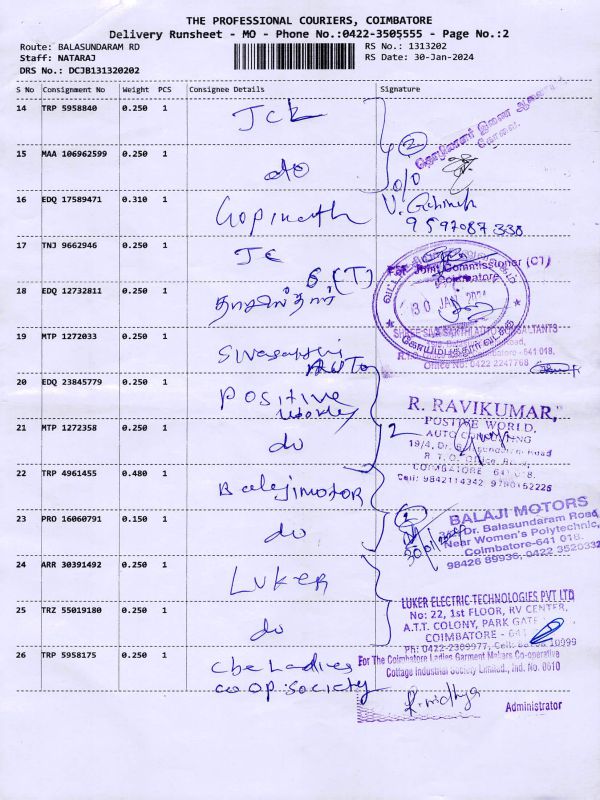 THE PROFESSIONAL COURIERS, COIMBATORE
Delivery Runsheet - MO - Phone No.:0422-3505555 - Page No.:2
Route: BALASUNDARAM RD RS No.: 1313202
Staff: NATARAJ RS Date: 30-Jan-2024
DRS No.: DCJB131320202
S No Consignment No Weight PCS Consignee Details Signature
14 TRP 5958840 0.250 1 JCK
15 MAA 106962599 0.250 1 do
16 EDQ 17589471 0.310 1 Gopinath
9597087338
17 TNJ 9662946 0.250 1 JC
(T)
Joint Commissioner (CT)
Coimbatore
18 EDQ 12732811 0.250 1
30 JAN 2024
19 MTP 1272033 0.250 1 Sivasakthi Auto
SHREE SIVA SAKTHI AUTO CONSULTANTS
Coimbatore - 641 018.
Office No: 0422 2247768
20 EDQ 23845779 0.250 1 Positive World
R. RAVIKUMAR,
POSTIVE WORLD,
21 MTP 1272358 0.250 1 do 2
AUTO CONSULTING
19/4, Dr. Balasundaram Road
R. T. O. Office Road,
COIMBATORE - 641 018.
Cell: 9842114342
22 TRP 4961455 0.480 1 Balajimotor
BALAJI MOTORS
Dr. Balasundaram Road,
Near Women's Polytechnic,
Coimbatore-641 018.
98426 89936, 0422 3520332
23 PRO 16060791 0.150 1 do 2
24 ARR 30391492 0.250 1 Luker
LUKER ELECTRIC TECHNOLOGIES PVT LTD
No: 22, 1st FLOOR, RV CENTER,
25 TRZ 55019180 0.250 1 do
A.T.T. COLONY, PARK GATE
COIMBATORE - 641
Ph: 0422-2309977, Cell:
26 TRP 5958175 0.250 1 Cbe Ladies
co op: society
For The Coimbatore Ladies Garment Makers Co-operative
Cottage Industrial Society Limited., Ind. No. 0610
Administrator